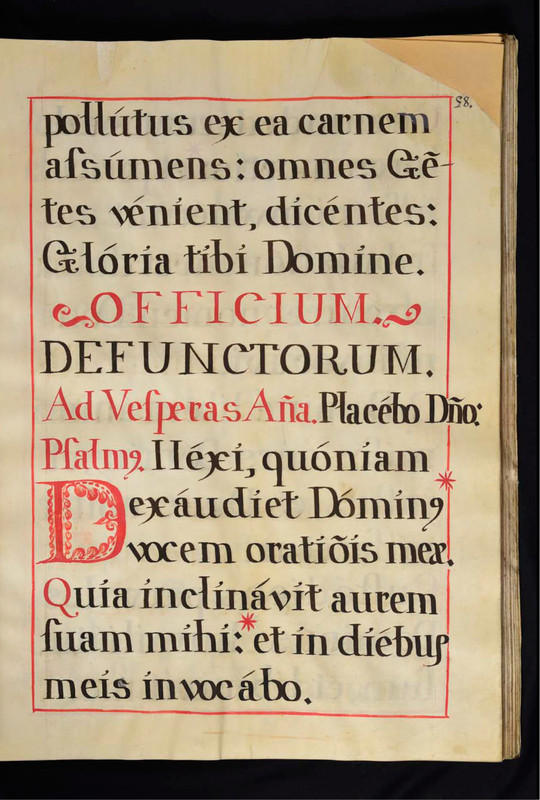 58.
pollútus ex ea carnem
aſsúmens: omnes Gẽ-
tes vénient, dicéntes:
Glória tibi Domine.
OFFICIUM.
DEFUNCTORUM.
Ad Veſperas Aña. Placébo Dño:
Pſalmꝯ. Iléxi, quóniam *
D exáudiet Dóminꝯ
vocem oratiõis meæ.
Quia inclinávit aurem
ſuam mihi: * et in diébus
meis invocábo.